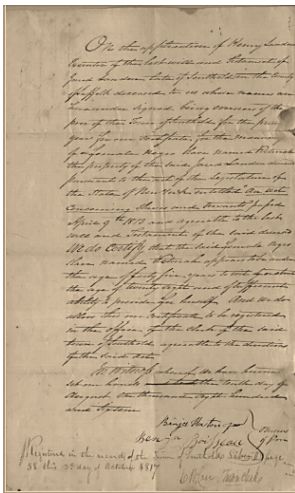 On the application of Henry Landon
Executor of the last will and Testament of
Jared Landon late of Southold in the County
of Suffolk deceased to us whose names are
hereunder signed being overseers of the
poor of the Town of Southold for the
year for our certificate for the manumission
of a female Negro Slave named
the property of the said Jared Landon deceased
pursuant to the act of the Legislature of
the State of New York entitled An Act
Concerning Slaves and Servants passed
April 9th 1813 and agreeable to the last
will and Testament of the said deceased
We do Certify that the said female Negro
Slave named appears to be under
the age of forty five years to wit of about
the age of twenty eight and of sufficient
ability to provide for herself. And we do
allow this our certificate to be registered
in the office of the Clerk of the said
town of Southold agreeable to the direction
of the said Act
In Witness whereof we have hereunto
set our hands the tenth day of
August one thousand eight hundred
and sixteen
Overseers
of Poor
Registered in the records of the Town of Southold page
38 this 23 day of October 1817